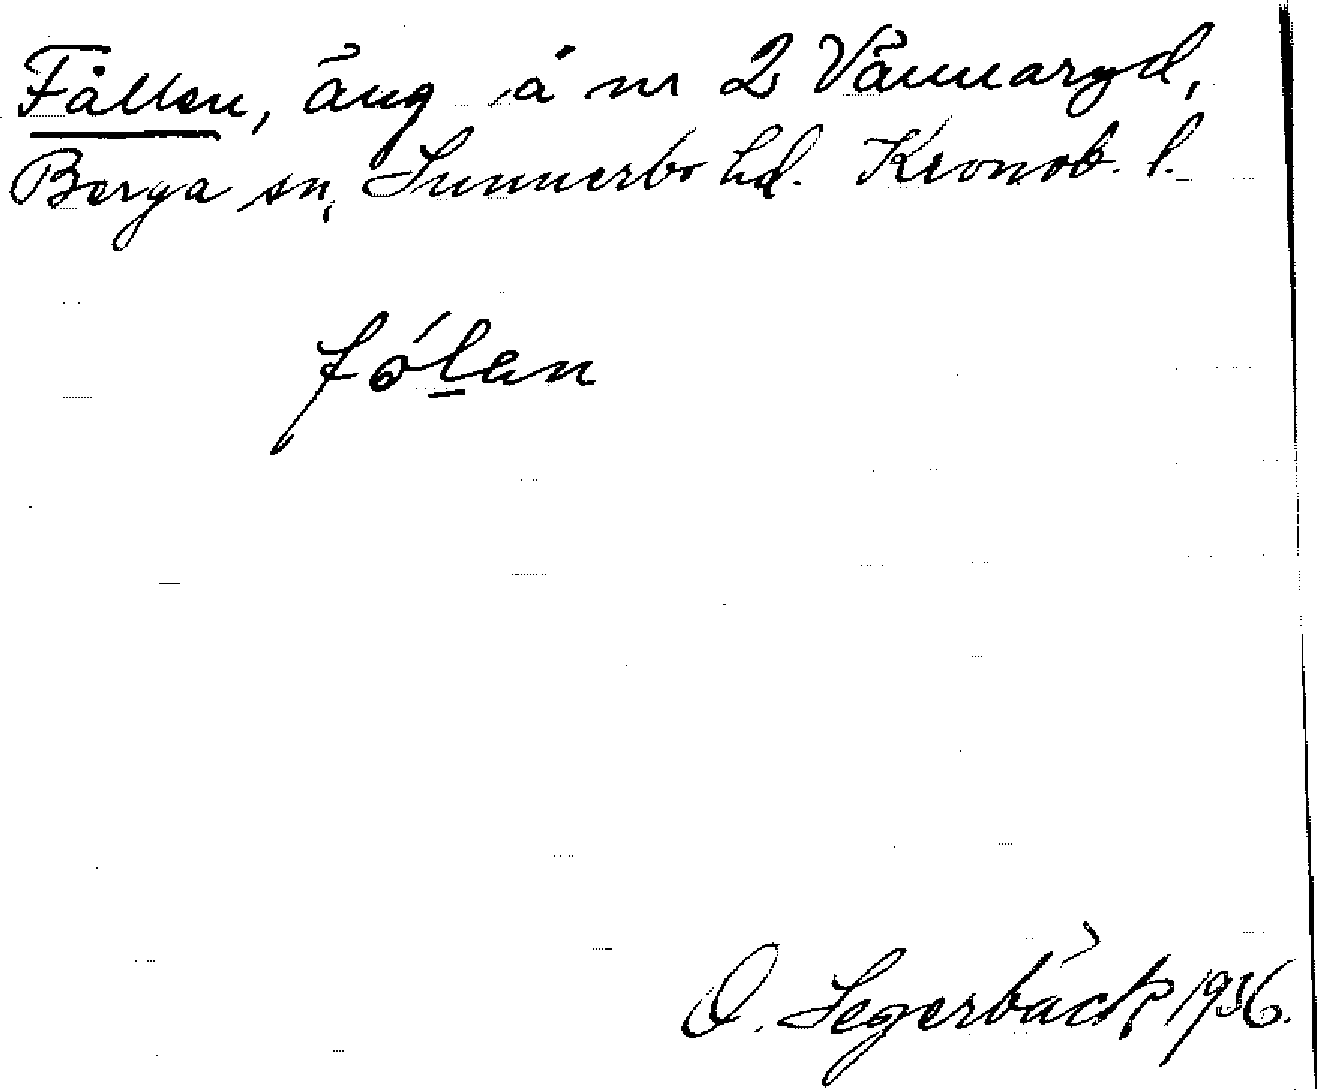 Fållen, äng å nr 2 Vännaryd,
Berga sn, Sunnerbo hd. Kronob. l.
fólan
O. Segerbäck 1936.